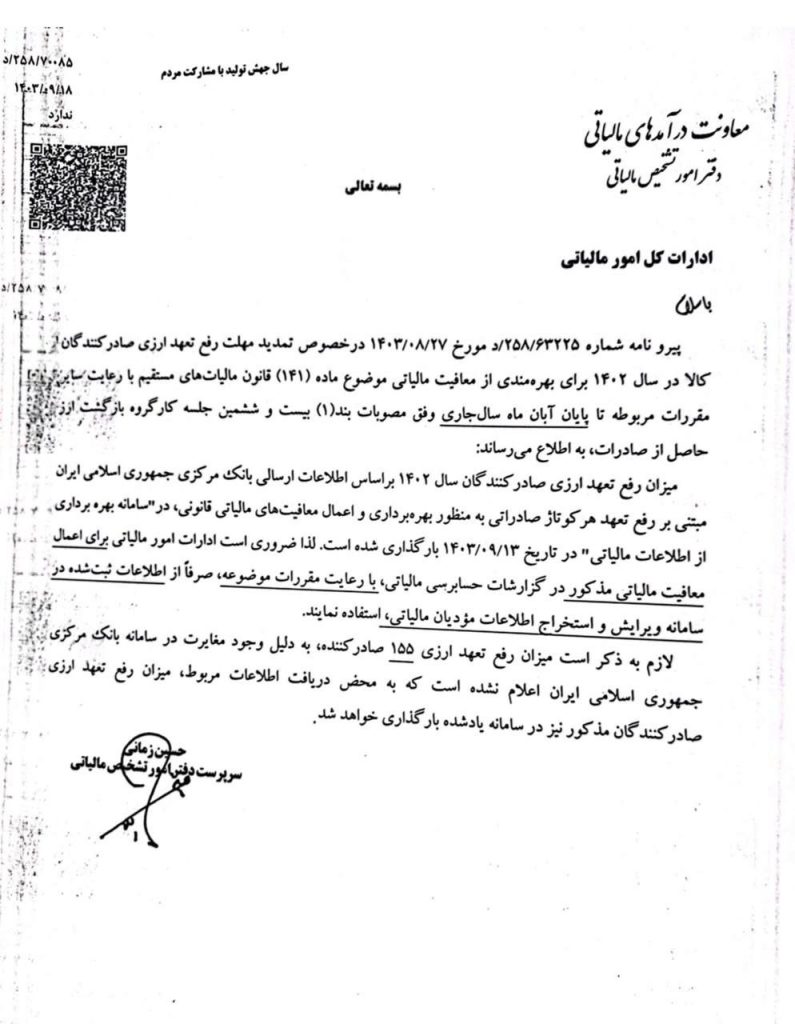 ۲۵۸/۷۰۰۸۵/د
۱۴۰۳/۰۹/۱۸
ندارد
سال جهش تولید با مشارکت مردم
معاونت درآمدهای مالیاتی
دفتر امور تشخیص مالیاتی
بسمه تعالی
ادارات کل امور مالیاتی
باسلام
پیرو نامه شماره ۲۵۸/۶۳۲۲۵/د مورخ ۱۴۰۳/۰۸/۲۷ درخصوص تمدید مهلت رفع تعهد ارزی صادرکنندگان
کالا در سال ۱۴۰۲ برای بهره‌مندی از معافیت مالیاتی موضوع ماده (۱۴۱) قانون مالیات‌های مستقیم با رعایت سایر
مقررات مربوطه تا پایان آبان ماه سال‌جاری وفق مصوبات بند(۱) بیست و ششمین جلسه کارگروه بازگشت ارز
حاصل از صادرات، به اطلاع می‌رساند:
میزان رفع تعهد ارزی صادرکنندگان سال ۱۴۰۲ براساس اطلاعات ارسالی بانک مرکزی جمهوری اسلامی ایران
مبتنی بر رفع تعهد هرکوتاژ صادراتی به منظور بهره‌برداری و اعمال معافیت‌های مالیاتی قانونی، در"سامانه بهره برداری
از اطلاعات مالیاتی" در تاریخ ۱۴۰۳/۰۹/۱۳ بارگذاری شده است. لذا ضروری است ادارات امور مالیاتی برای اعمال
معافیت مالیاتی مذکور در گزارشات حسابرسی مالیاتی، با رعایت مقررات موضوعه، صرفاً از اطلاعات ثبت‌شده در
سامانه ویرایش و استخراج اطلاعات مؤدیان مالیاتی، استفاده نمایند.
لازم به ذکر است میزان رفع تعهد ارزی ۱۵۵ صادرکننده، به دلیل وجود مغایرت در سامانه بانک مرکزی
جمهوری اسلامی ایران اعلام نشده است که به محض دریافت اطلاعات مربوط، میزان رفع تعهد ارزی
صادرکنندگان مذکور نیز در سامانه یادشده بارگذاری خواهد شد.
حسین زمانی
سرپرست دفتر امور تشخیص مالیاتی